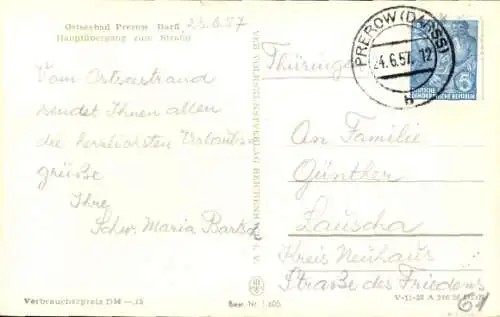 Ostseebad Prerow Darß 23.6.57
Hauptübergang zum Strand
Vom Ostseestrand
sendet Ihnen allen
die herzlichsten Urlaubs-
grüße
Ihre
Schw. Maria Bartsch
Verbraucherpreis DM -.15
Best. Nr. 1 605
Thüringen
PREROW (DARSS)
24.6.57. 12
b
5
DEUTSCHE
DEMOKRATISCHE REPUBLIK
An Familie
Günther
Lauscha
Kreis Neuhaus
Straße des Friedens
61